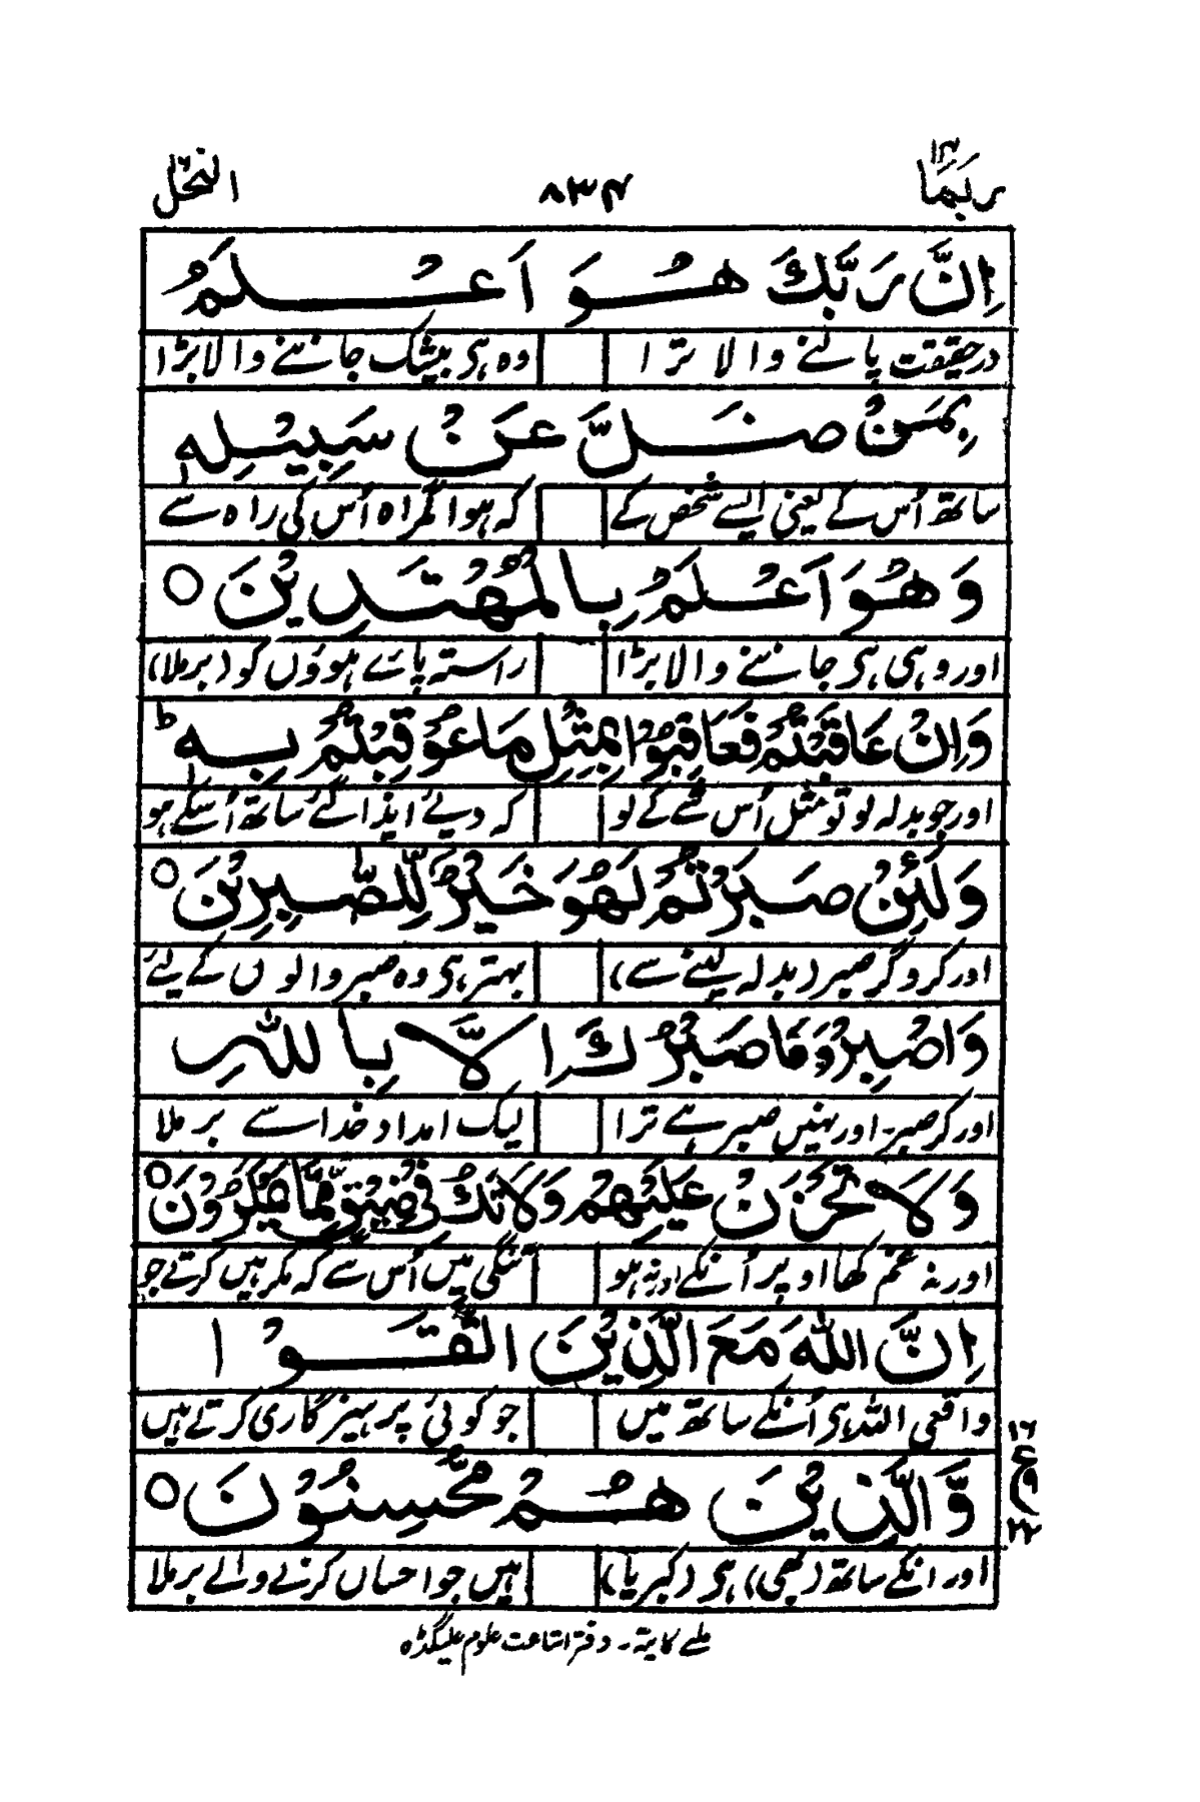 ربما ۱۴ ۸۳۴ النحل
اِنَّ رَبَّكَ هُوَ اَعْلَمُ
درحقیقت پالنے والا ترا وہ ہی بیشک جاننے والا بڑا
بِمَنْ ضَلَّ عَنْ سَبِيْلِهٖ
ساتھ اُس کے یعنی ایسے شخص کے کہ ہوا گمراہ اُس کی راہ سے
وَهُوَ اَعْلَمُ بِالْمُهْتَدِيْنَ ○
اور وہی ہی جاننے والا بڑا راستہ پائے ہوؤں کو (برملا)
وَاِنْ عَاقَبْتُمْ فَعَاقِبُوْا بِمِثْلِ مَا عُوْقِبْتُمْ بِهٖ ؕ
اور جو بدلہ لو تو مثل اُس شے کے لو کہ دیے ایذا گئے ساتھ اُسکے ہو
وَلَئِنْ صَبَرْتُمْ لَهُوَ خَيْرٌ لِّلصّٰبِرِيْنَ ○
اور کرو گر صبر (بدلہ لینے سے) بہتر ہی وہ صبر والوں کے لیئے
وَاصْبِرْ وَمَا صَبْرُكَ اِلَّا بِاللّٰهِ
اور کر صبر۔ اور نہیں صبر ہے ترا لیک امداد خدا سے برملا
وَلَا تَحْزَنْ عَلَيْهِمْ وَلَا تَكُ فِيْ ضَيْقٍ مِّمَّا يَمْكُرُوْنَ ○
اور نہ غم کھا اوپر اُنکے اور نہ ہو تنگی میں اُس سے کہ مکر ہیں کرتے جو
اِنَّ اللّٰهَ مَعَ الَّذِيْنَ اتَّقَوْا
واقعی اللہ ہی اُنکے ساتھ میں جو کوئی پرہیزگاری کرتے ہیں
وَّالَّذِيْنَ هُمْ مُّحْسِنُوْنَ ○
۱۶ ع ۲۲
اور انکے ساتھ (بھی) ہی (کبریا) ہیں جو احسان کرنے والے برملا
ملے کا پتہ۔ دفتر اشاعت علوم علیگڈہ